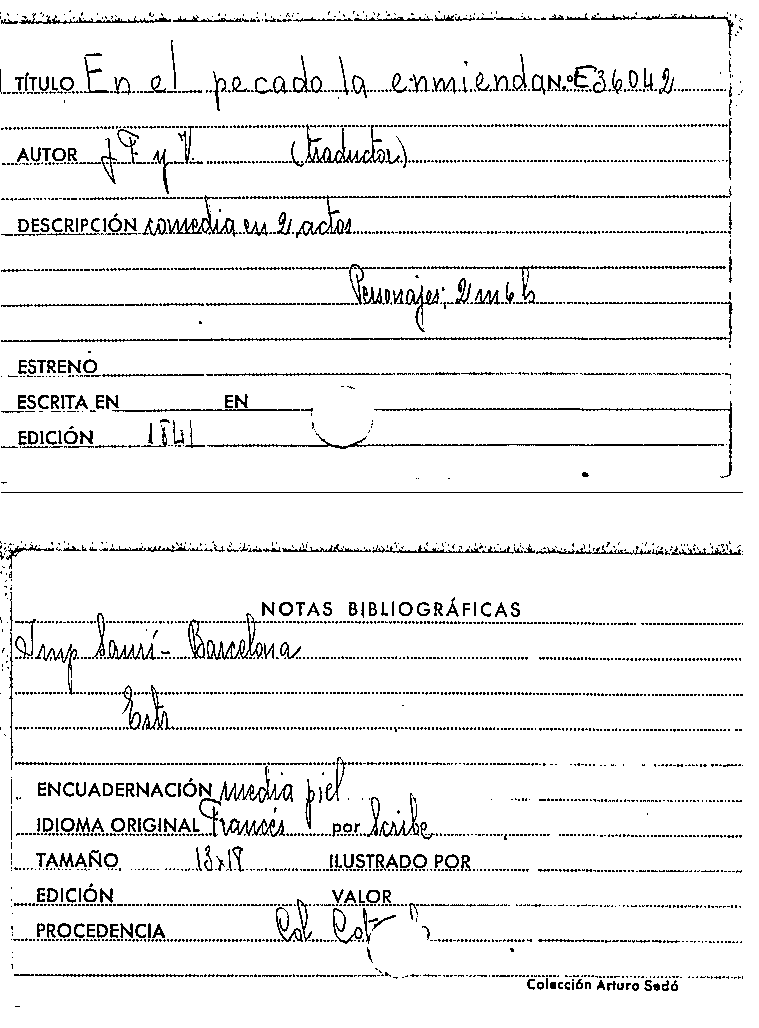 TÍTULO En el pecado la enmienda N.º E36042
AUTOR J F y V (traductor)
DESCRIPCIÓN comedia en 2 actos
Personajes: 2 m 6 h
ESTRENO
ESCRITA EN EN
EDICIÓN 1841
NOTAS BIBLIOGRÁFICAS
Imp Saurí - Barcelona
Estr
ENCUADERNACIÓN media piel
IDIOMA ORIGINAL Francés por Scribe
TAMAÑO 13x18 ILUSTRADO POR
EDICIÓN VALOR
PROCEDENCIA Col
Colección Arturo Sedó